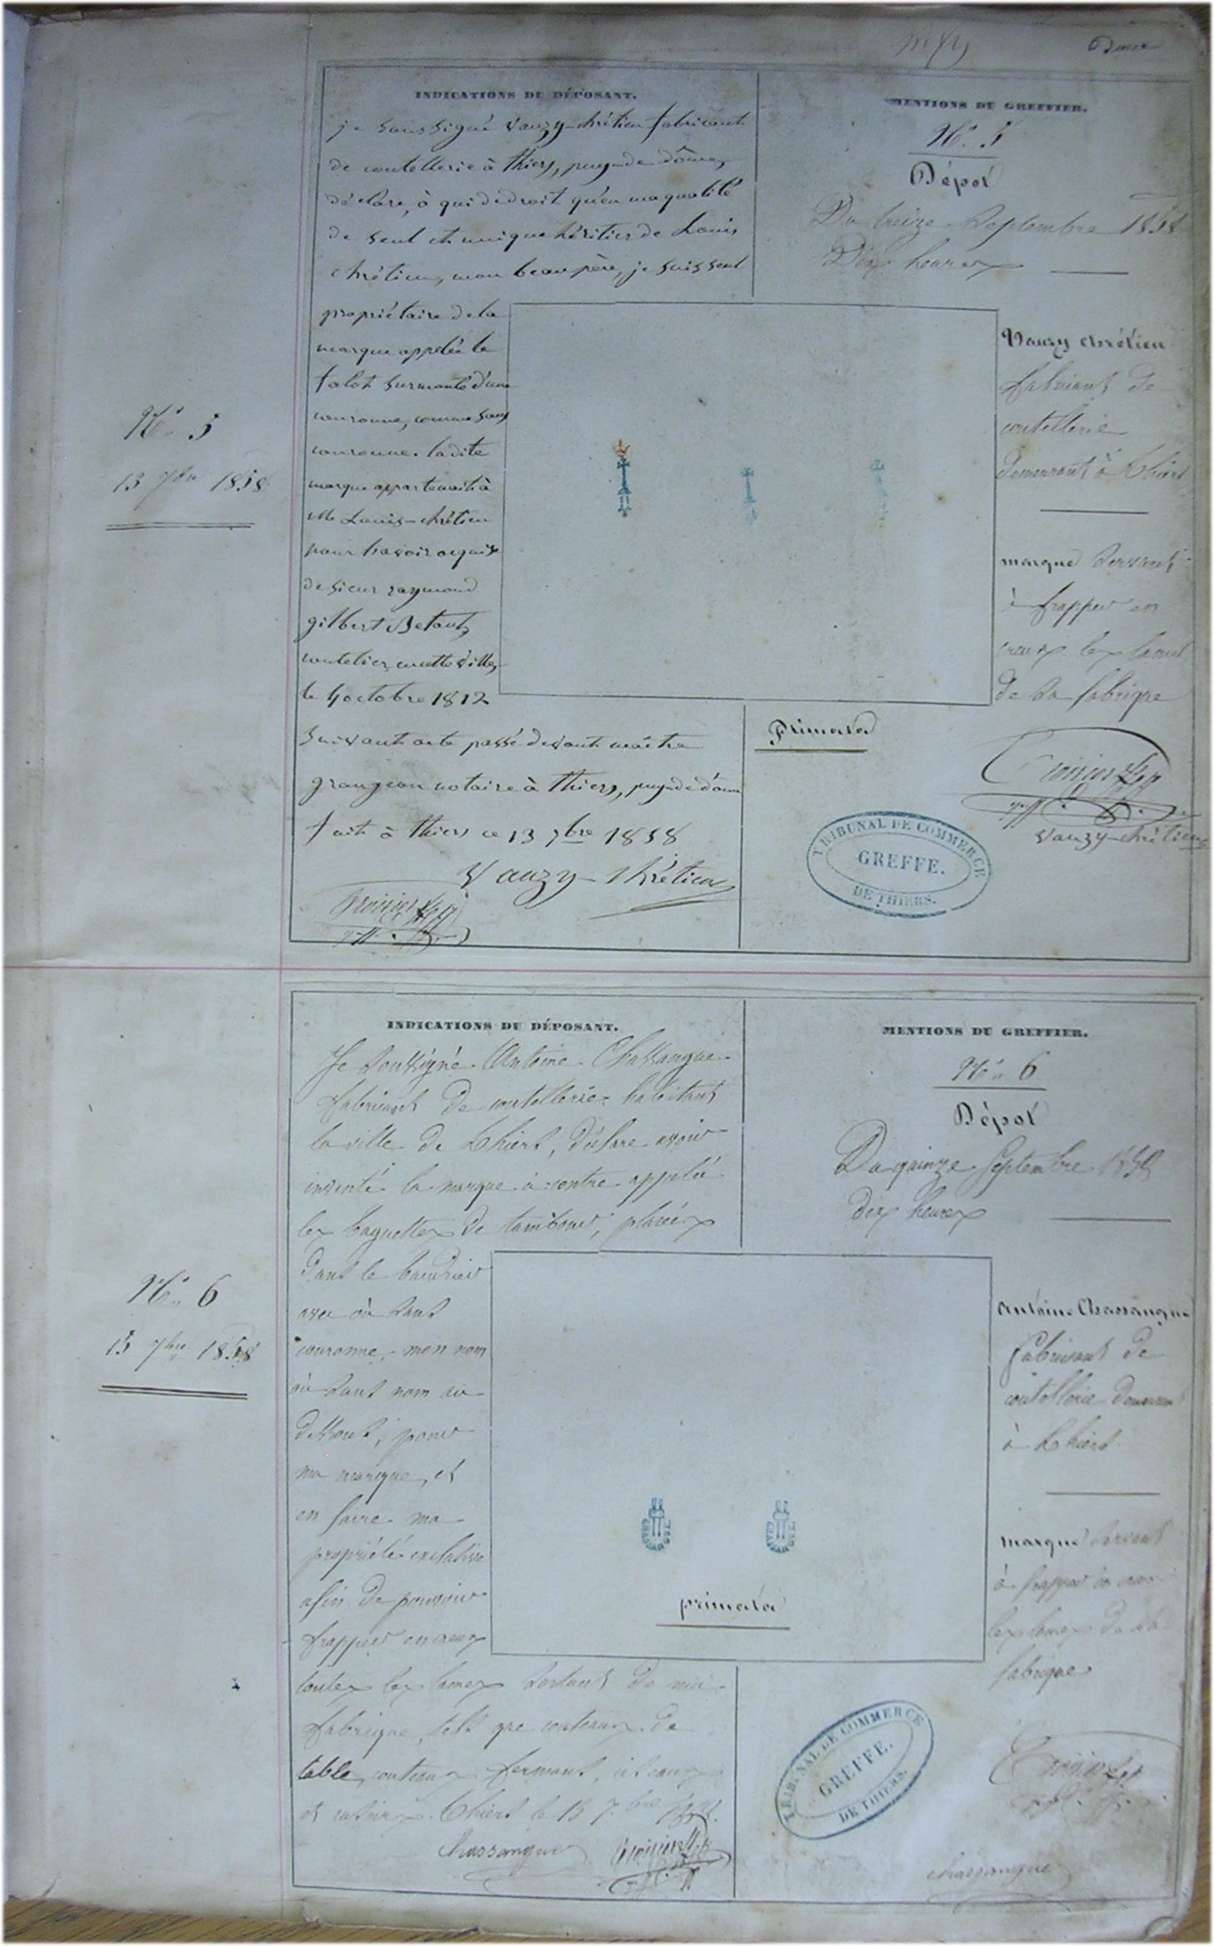 INDICATIONS DU DÉPOSANT.
je soussigné Vauzy-chrétien fabricant
de coutellerie à thiers, puy de dôme,
déclare, à qui de droit qu'en ma qualité
de seul et unique héritier de Louis
chrétien, mon beau père, je suis seul
propriétaire de la
marque appelée le
falot surmonté d'une
couronne, comme sans
couronne. ladite
marque appartenait à
Mr Louis-chrétien
pour l'avoir acquise
de sieur raymond
gilbert
coutelier, cette ville,
le 4 octobre 1812
suivant acte passé devant maître
grangeon notaire à thiers, puy de dôme
fait à thiers ce 13 7bre 1858
Vauzy-chrétien
MENTIONS DU GREFFIER.
No. 5
Dépôt
Du treize Septembre 1858
Dix heures
Vauzy chrétien
fabricant de
coutellerie
demeurant à thiers
marque servant
à frapper en
creux les lames
de sa fabrique
primata
Vauzy-chrétien
TRIBUNAL DE COMMERCE
GREFFE.
DE THIERS.
No. 5
13 7bre 1858
INDICATIONS DU DÉPOSANT.
Je soussigné Antoine Chassangue
fabricant de coutellerie habitant
la ville de thiers, déclare avoir
inventé la marque à contre appelée
les baguettes de tambour, placées
dans le baudrier
avec ou sans
couronne, mon nom
ou sans nom au
dessous, pour
ma marque, et
en faire ma
propriété exclusive
afin de pouvoir
frapper en creux
toutes les lames sortant de ma
fabrique, tels que couteaux de
table, couteaux fermant, ciseaux
et rasoirs. Thiers le 15 7bre 1858.
chassangue
MENTIONS DU GREFFIER.
No. 6
Dépôt
Du quinze Septembre 1858
dix heures
Antoine Chassangue
fabricant de
coutellerie demeurant
à thiers
marque servant
à frapper en creux
les lames de sa
fabrique
primata
chassangue
TRIBUNAL DE COMMERCE
GREFFE.
DE THIERS.
No. 6
15 7bre 1858